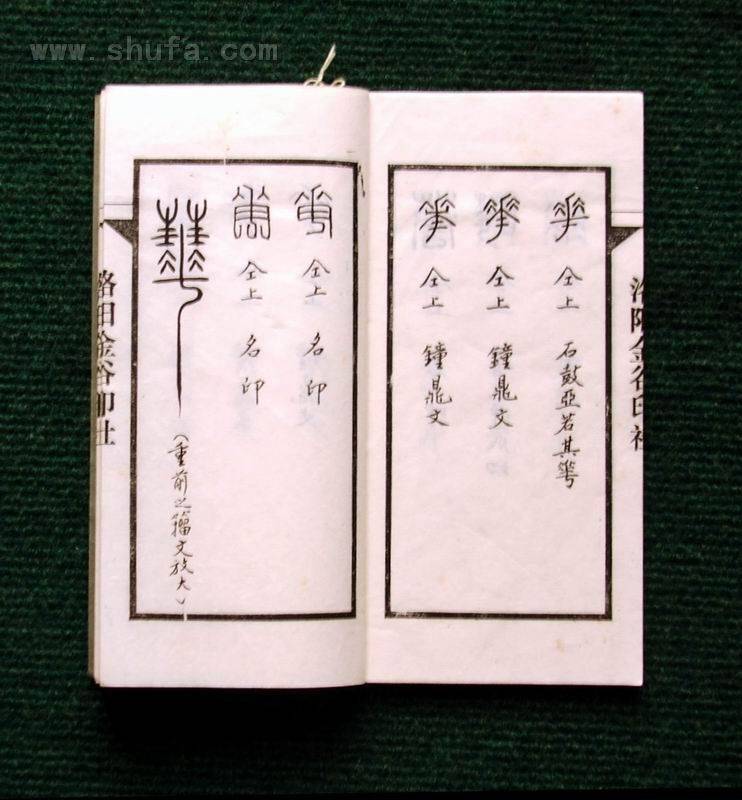 www.shufa.com
華 仝上 石鼓亞若其華
華 仝上 鐘鼎文
華 仝上 鐘鼎文
洛陽金谷印社
仝上 名印
仝上 名印
華
(重前之籀文放大)
洛阳金谷印社